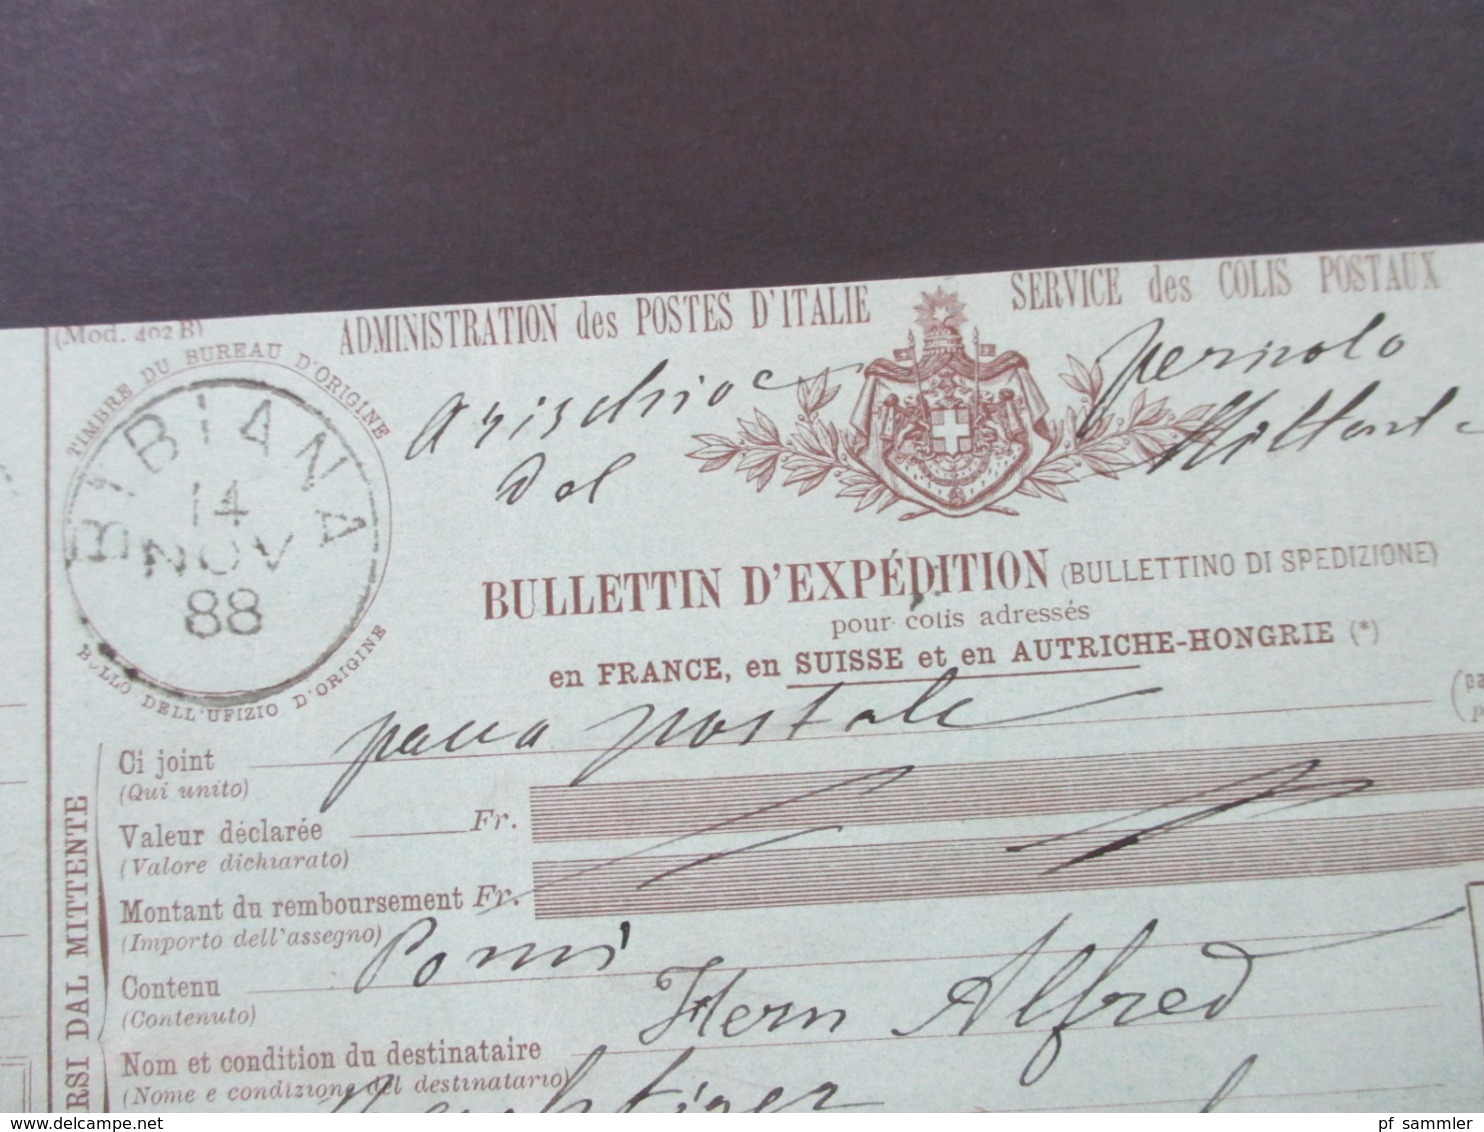 (Mod. 402 B)
ADMINISTRATION des POSTES D'ITALIE
SERVICE des COLIS POSTAUX
TIMBRE DU BUREAU D'ORIGINE
BIBIANA
14
NOV
88
BOLLO DELL'UFIZIO D'ORIGINE
a rischio e pericolo
del Mittente
BULLETTIN D'EXPÉDITION (BULLETTINO DI SPEDIZIONE)
pour colis adressés
en FRANCE, en SUISSE et en AUTRICHE-HONGRIE (*)
Ci joint pacco postale
(Qui unito)
Valeur déclarée Fr.
(Valore dichiarato)
Montant du remboursement Fr.
(Importo dell'assegno)
Contenu Pomi
(Contenuto)
Nom et condition du destinataire Herrn Alfred
(Nome e condizione del destinatario)
RSI DAL MITTENTE
delcampe.net
pf_sammler